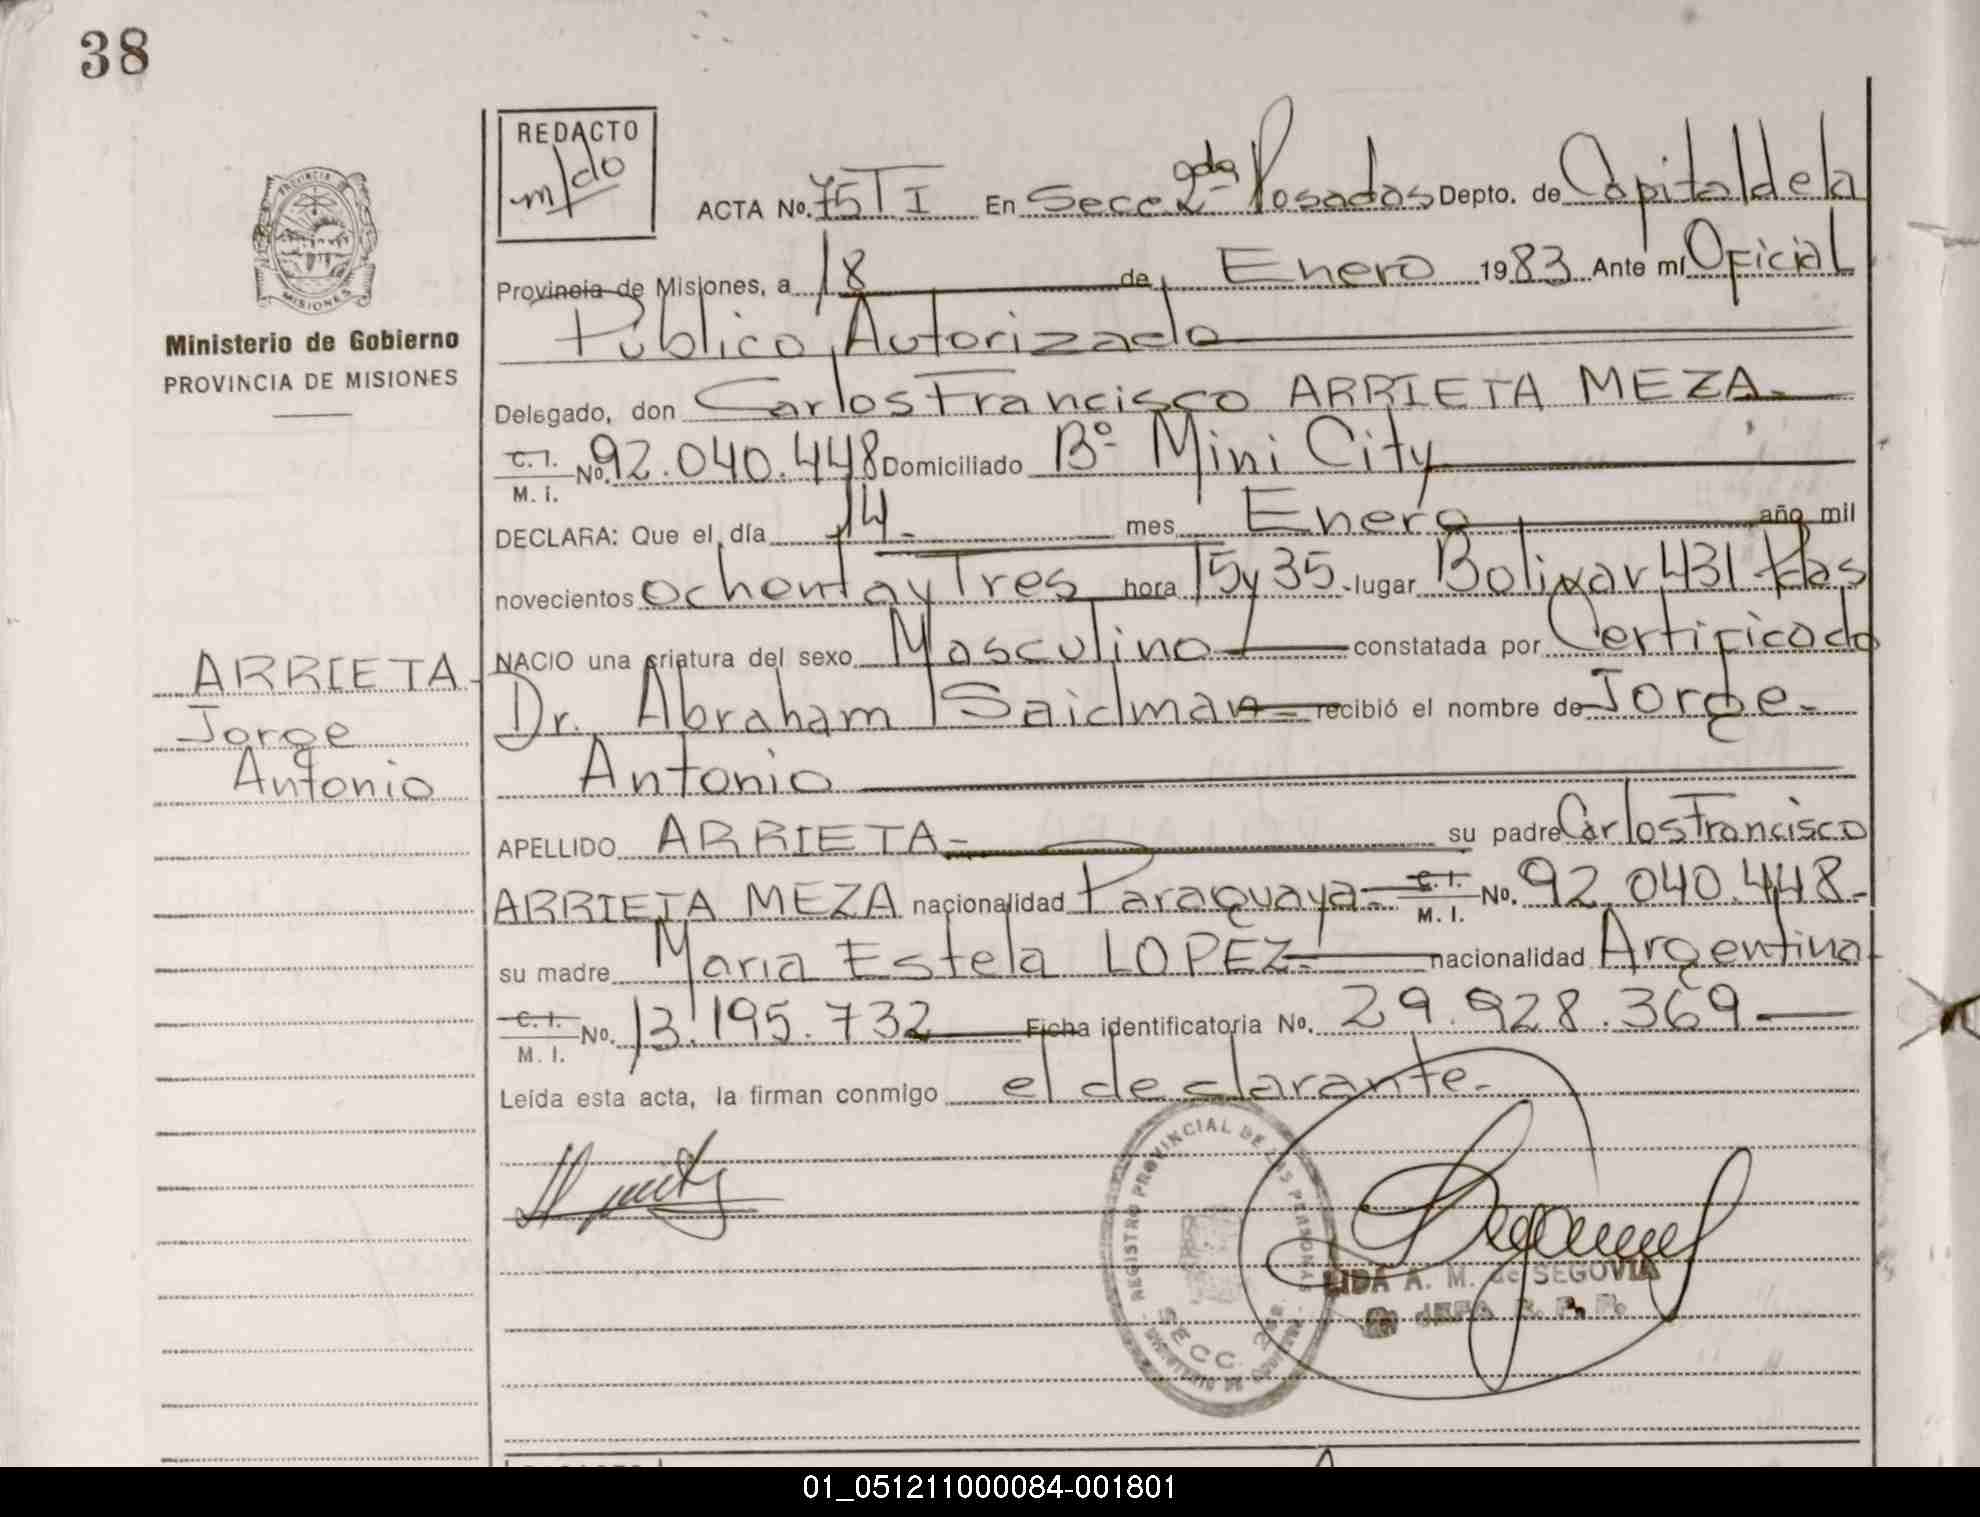 38
REDACTO
m/do
ACTA No. 75 T I En Secc. 2da Posadas Depto. de Capital de la
Provincia de Misiones, a 18 de Enero 1983 Ante mí Oficial
Público Autorizado
Delegado, don Carlos Francisco ARRIETA MEZA.
C. I. M. I. No. 92.040.448 Domiciliado Bº Mini City
DECLARA: Que el día 14 mes Enero año mil
novecientos ochenta y Tres hora 15 y 35 lugar Bolivar 431 Pdas
NACIO una criatura del sexo Masculino constatada por Certificado
Dr. Abraham Saidman recibió el nombre de Jorge
Antonio
APELLIDO ARRIETA su padre Carlos Francisco
ARRIETA MEZA nacionalidad Paraguaya C. I. M. I. No. 92.040.448
su madre Maria Estela LOPEZ nacionalidad Argentina
C. I. M. I. No. 13.195.732 Ficha identificatoria No. 29.928.369
Leída esta acta, la firman conmigo el declarante.
PROVINCIA DE
MISIONES
Ministerio de Gobierno
PROVINCIA DE MISIONES
ARRIETA
Jorge
Antonio
REGISTRO PROVINCIAL DE LAS PERSONAS
SECC. 2da.
LIDA A. M. de SEGOVIA
JEFA R. P. P.
01_051211000084-001801